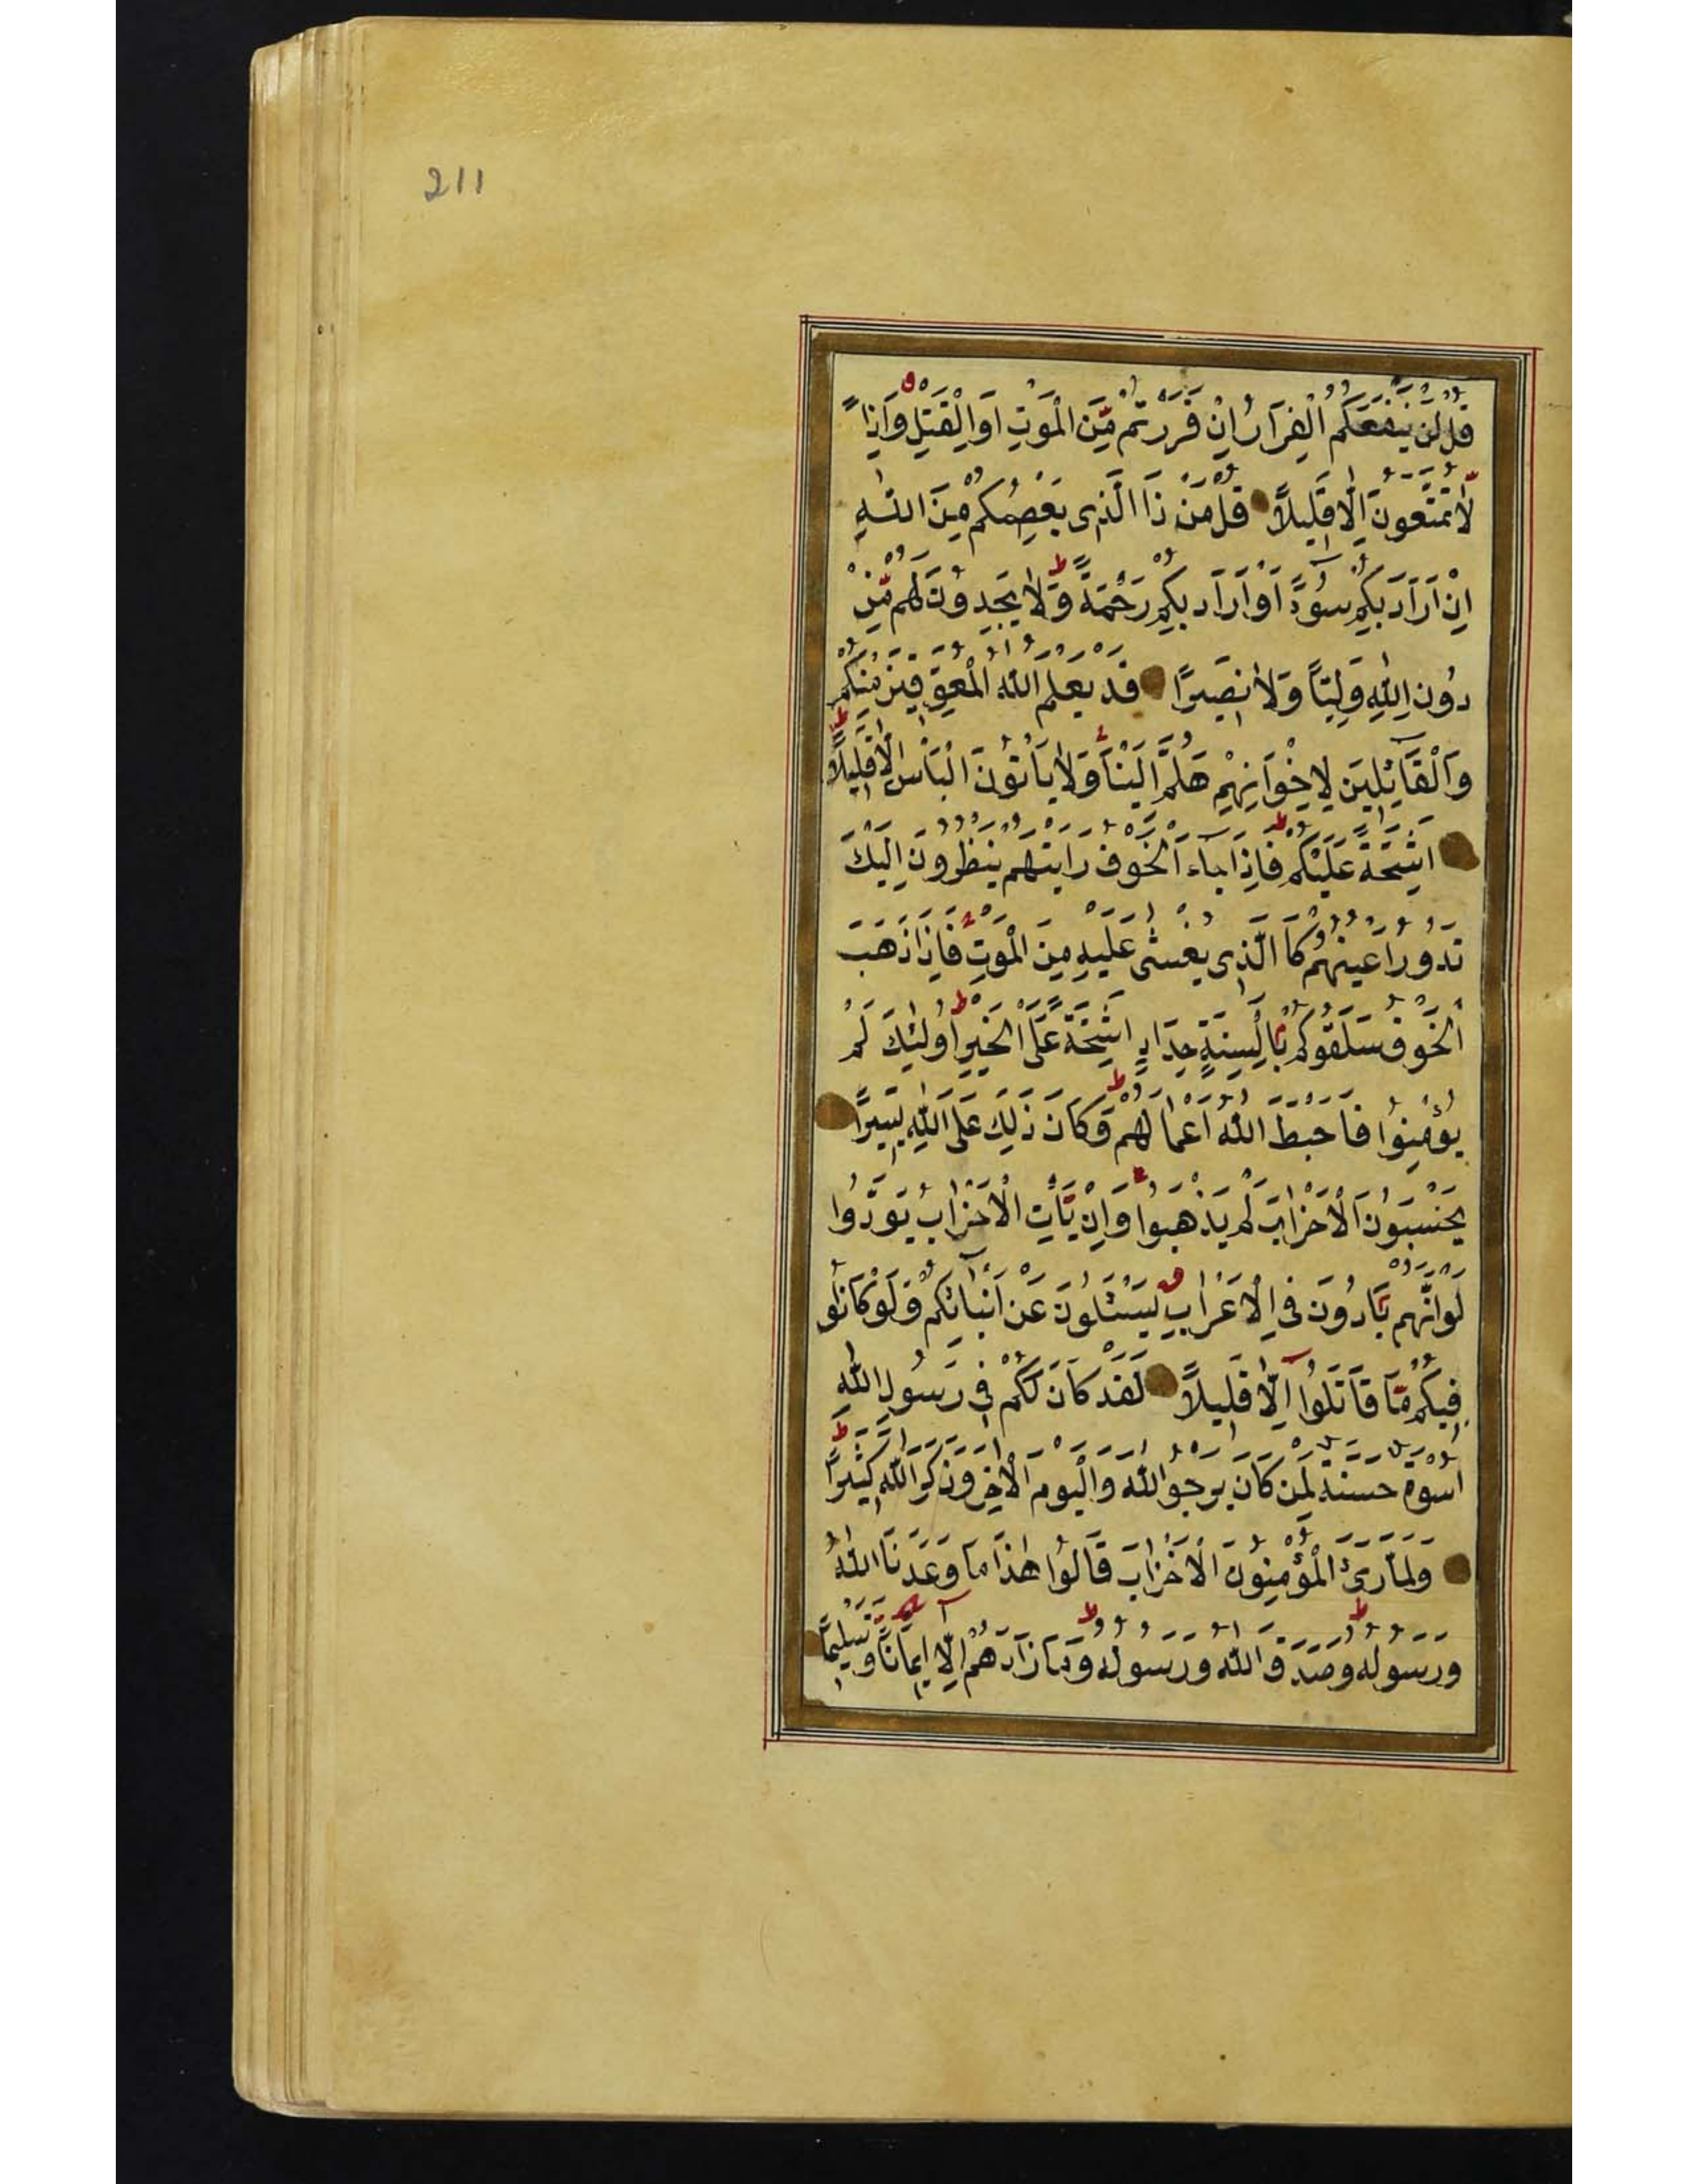 211
قُلْ لَنْ يَنْفَعَكُمُ الْفِرَارُ اِنْ فَرَرْتُمْ مِّنَ الْمَوْتِ اَوِ الْقَتْلِ وَاِذًا
لَّا تُمَتَّعُونَ اِلَّا قَلِيلًا قُلْ مَنْ ذَا الَّذِى يَعْصِمُكُمْ مِّنَ اللّٰهِ
اِنْ اَرَادَ بِكُمْ سُوٓءًا اَوْ اَرَادَ بِكُمْ رَحْمَةً ط وَلَا يَجِدُونَ لَهُمْ مِّنْ
دُونِ اللّٰهِ وَلِيًّا وَّلَا نَصِيرًا قَدْ يَعْلَمُ اللّٰهُ الْمُعَوِّقِينَ مِنْكُمْ
وَالْقَآئِلِينَ لِاِخْوَانِهِمْ هَلُمَّ اِلَيْنَا وَلَا يَأْتُونَ الْبَأْسَ اِلَّا قَلِيلًا ط
اَشِحَّةً عَلَيْكُمْ ط فَاِذَا جَآءَ الْخَوْفُ رَاَيْتَهُمْ يَنْظُرُونَ اِلَيْكَ
تَدُورُ اَعْيُنُهُمْ كَاالَّذِى يُغْشٰى عَلَيْهِ مِنَ الْمَوْتِ فَاِذَا ذَهَبَ
الْخَوْفُ سَلَقُوكُمْ بِاَلْسِنَةٍ حِدَادٍ اَشِحَّةً عَلَى الْخَيْرِ ط اُولٰئِكَ لَمْ
يُؤْمِنُوا فَاَحْبَطَ اللّٰهُ اَعْمَالَهُمْ ط وَكَانَ ذٰلِكَ عَلَى اللّٰهِ يَسِيرًا
يَحْسَبُونَ الْاَحْزَابَ لَمْ يَذْهَبُوا وَاِنْ يَّأْتِ الْاَحْزَابُ يَوَدُّوا
لَوْ اَنَّهُمْ بَادُونَ فِى الْاَعْرَابِ يَسْئَلُونَ عَنْ اَنْبَآئِكُمْ وَلَوْ كَانُوا
فِيكُمْ مَّا قَاتَلُوٓا اِلَّا قَلِيلًا لَقَدْ كَانَ لَكُمْ فِى رَسُولِ اللّٰهِ
اُسْوَةٌ حَسَنَةٌ لِمَنْ كَانَ يَرْجُو اللّٰهَ وَالْيَوْمَ الْاٰخِرَ وَذَكَرَ اللّٰهَ كَثِيرًا ط
وَلَمَّا رَئَ الْمُؤْمِنُونَ الْاَحْزَابَ قَالُوا هٰذَا مَا وَعَدَنَا اللّٰهُ
وَرَسُولُهُ وَصَدَقَ اللّٰهُ وَرَسُولُهُ ط وَمَا زَادَهُمْ اِلَّا اِيمَانًا وَّتَسْلِيمًا